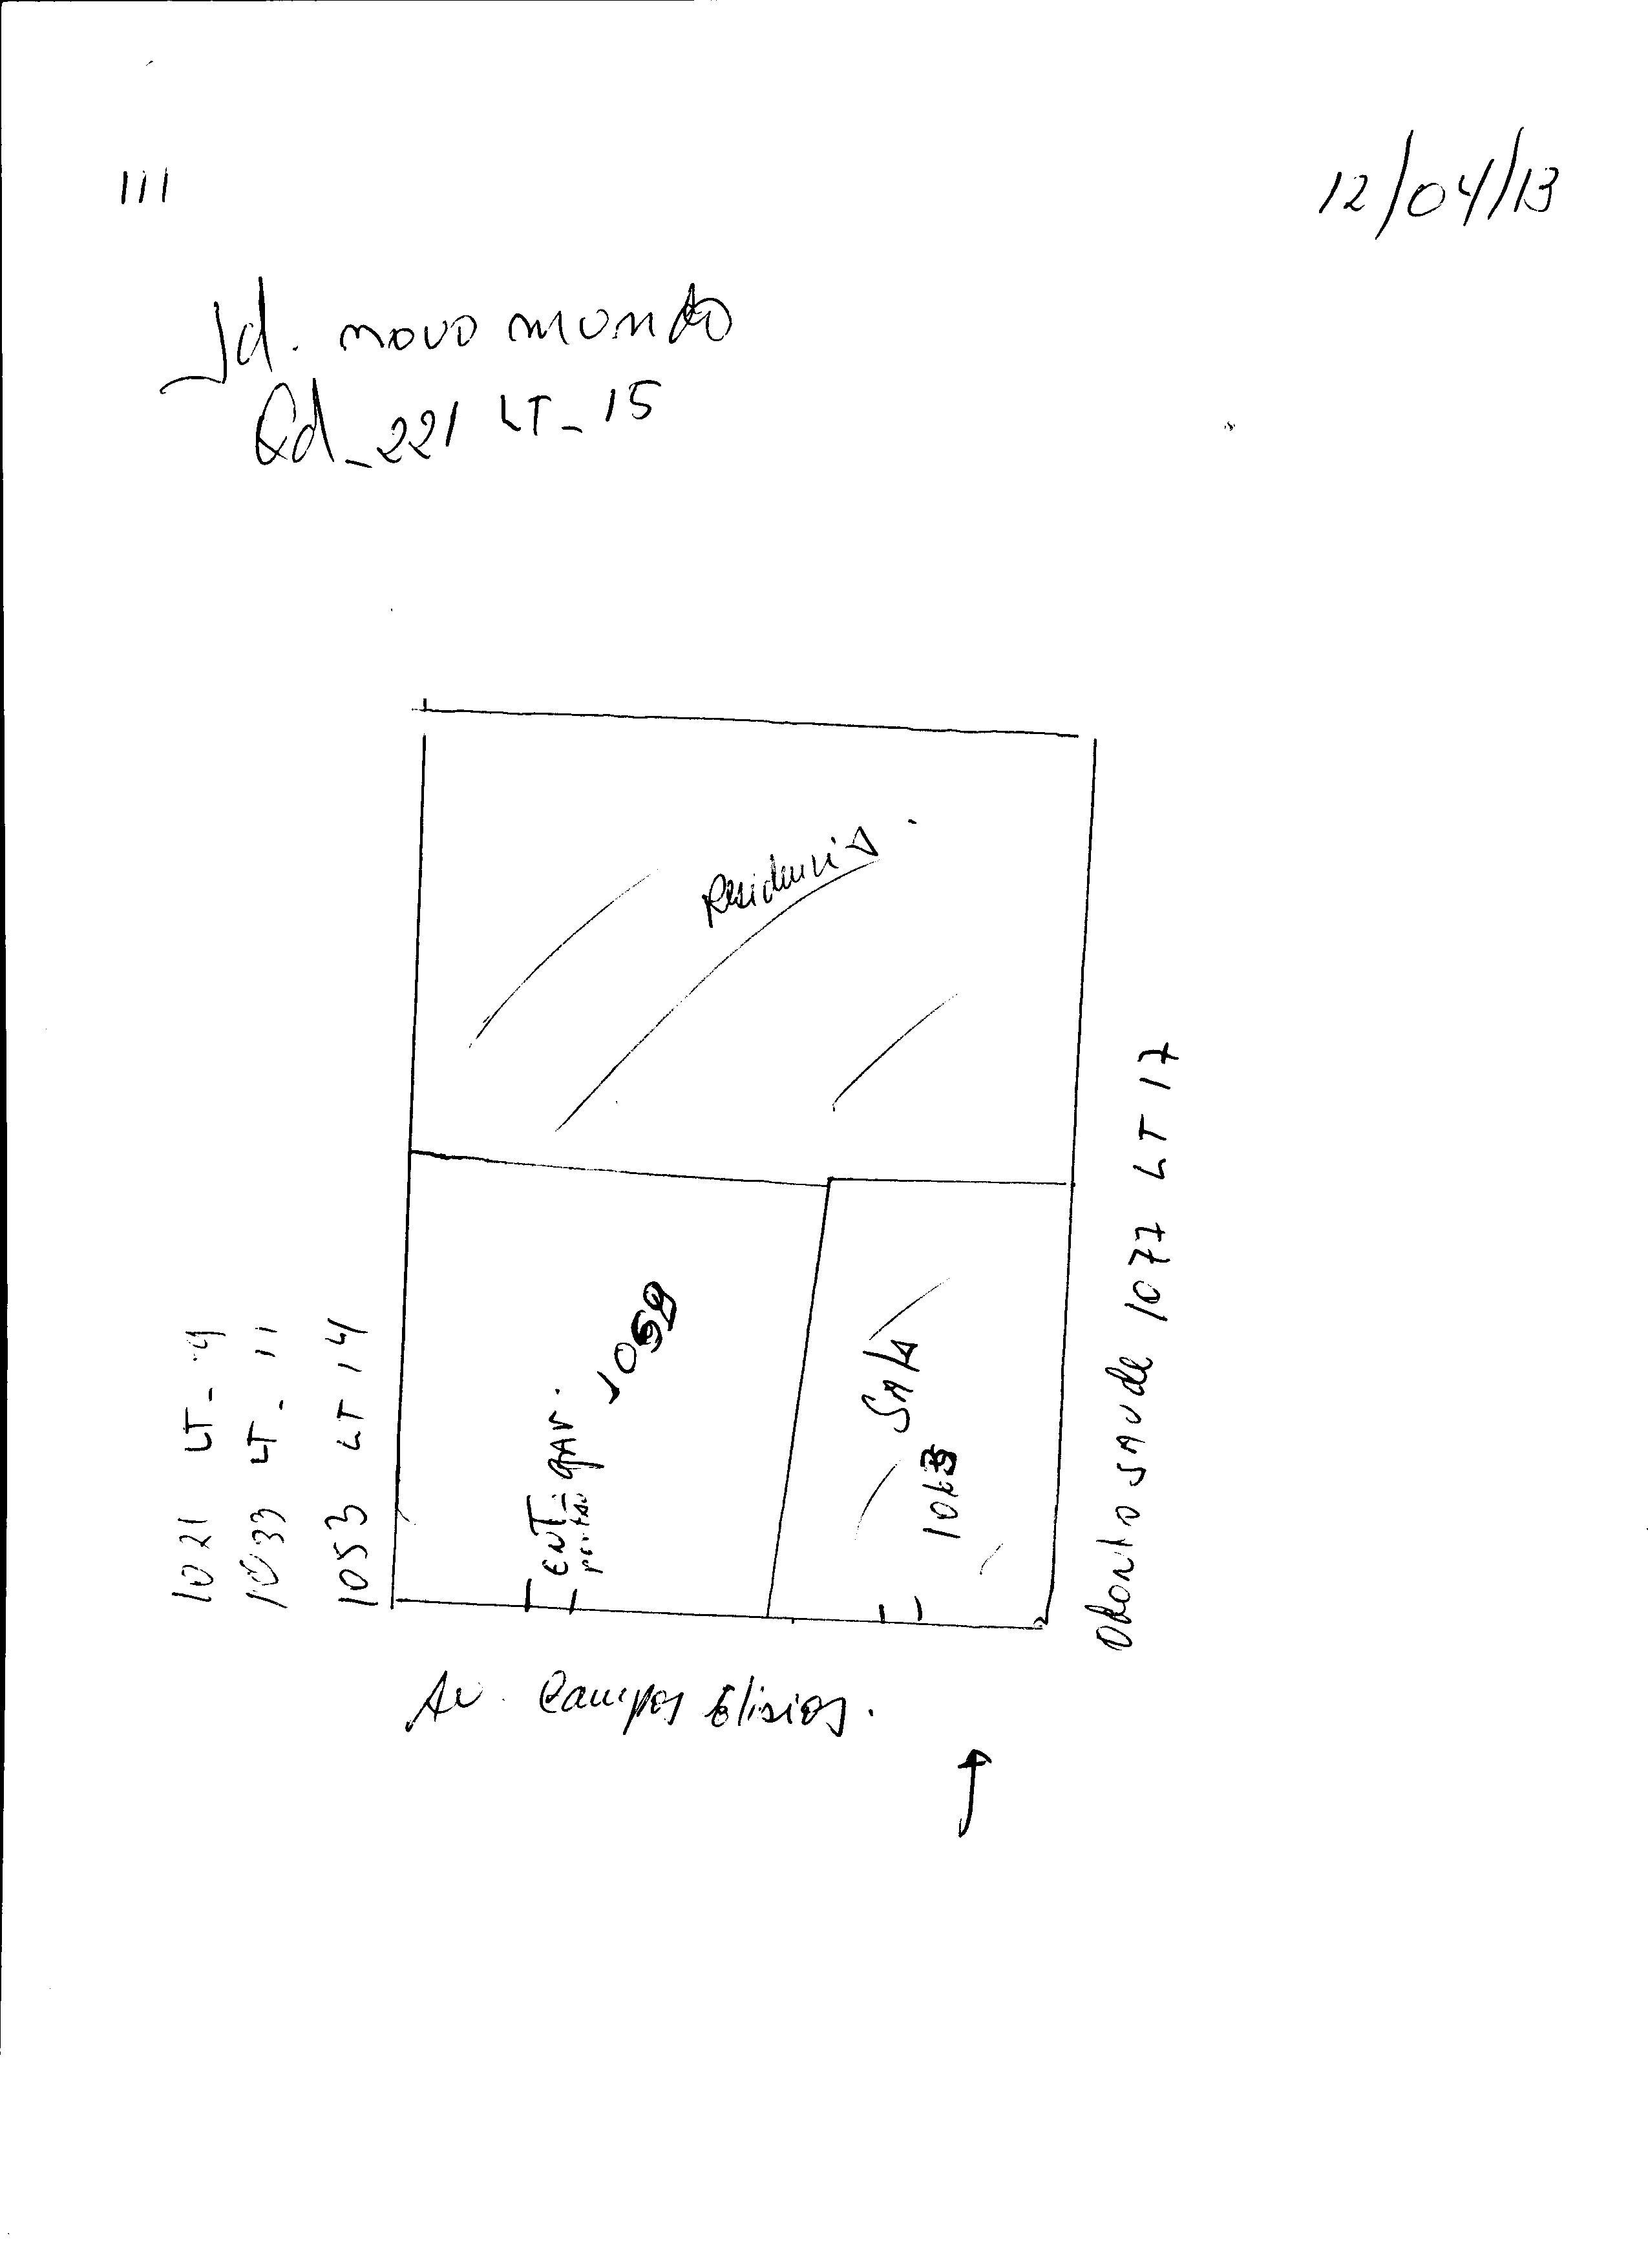 111
12/04/13
Jd. novo mundo
Qd_221 LT_15
Residencia.
1021 LT_ 9
1033 LT_ 11
1053 LT 14
ENT. gAr.
portão
SALA
Odonto SAUde 1077 LT 17
Av. Campos Elisios.